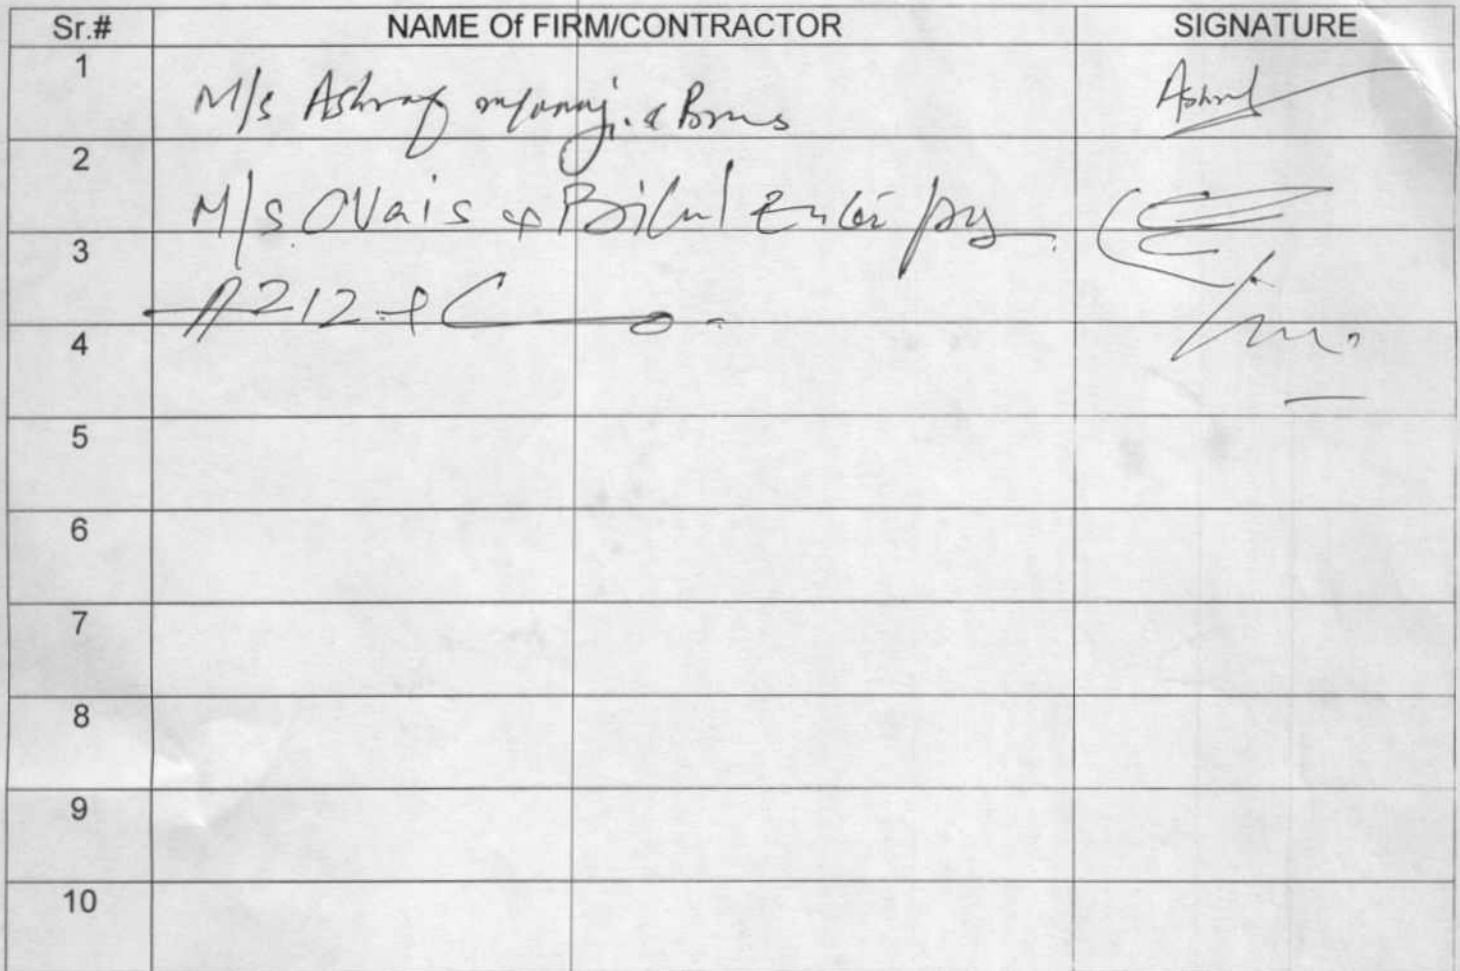 Sr.# NAME Of FIRM/CONTRACTOR SIGNATURE
1 M/s Ashraf & Bros Ashraf
2 M/s. OVais & Bilal Enterprs
3
4
5
6
7
8
9
10